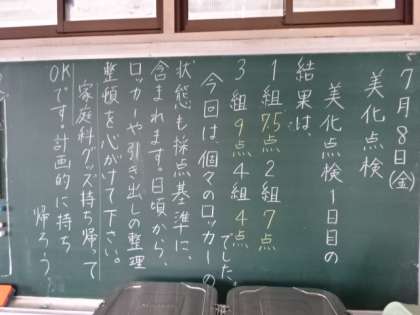 7月8日(金)
美化点検
美化点検1日目の
結果は、
1組7.5点2組7点
3組9点4組4点
でした。
今回は、個々のロッカーの
状態も採点基準に、
含まれます。日頃から、
ロッカーや引き出しの整理
整頓を心がけて下さい。
家庭科グッズ持ち帰って
OKです。計画的に持ち
帰ろう